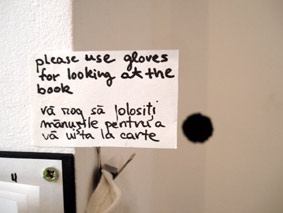 please use gloves
for looking at the
book
vă rog să folosiți
mănușile pentru a
vă uita la carte
4